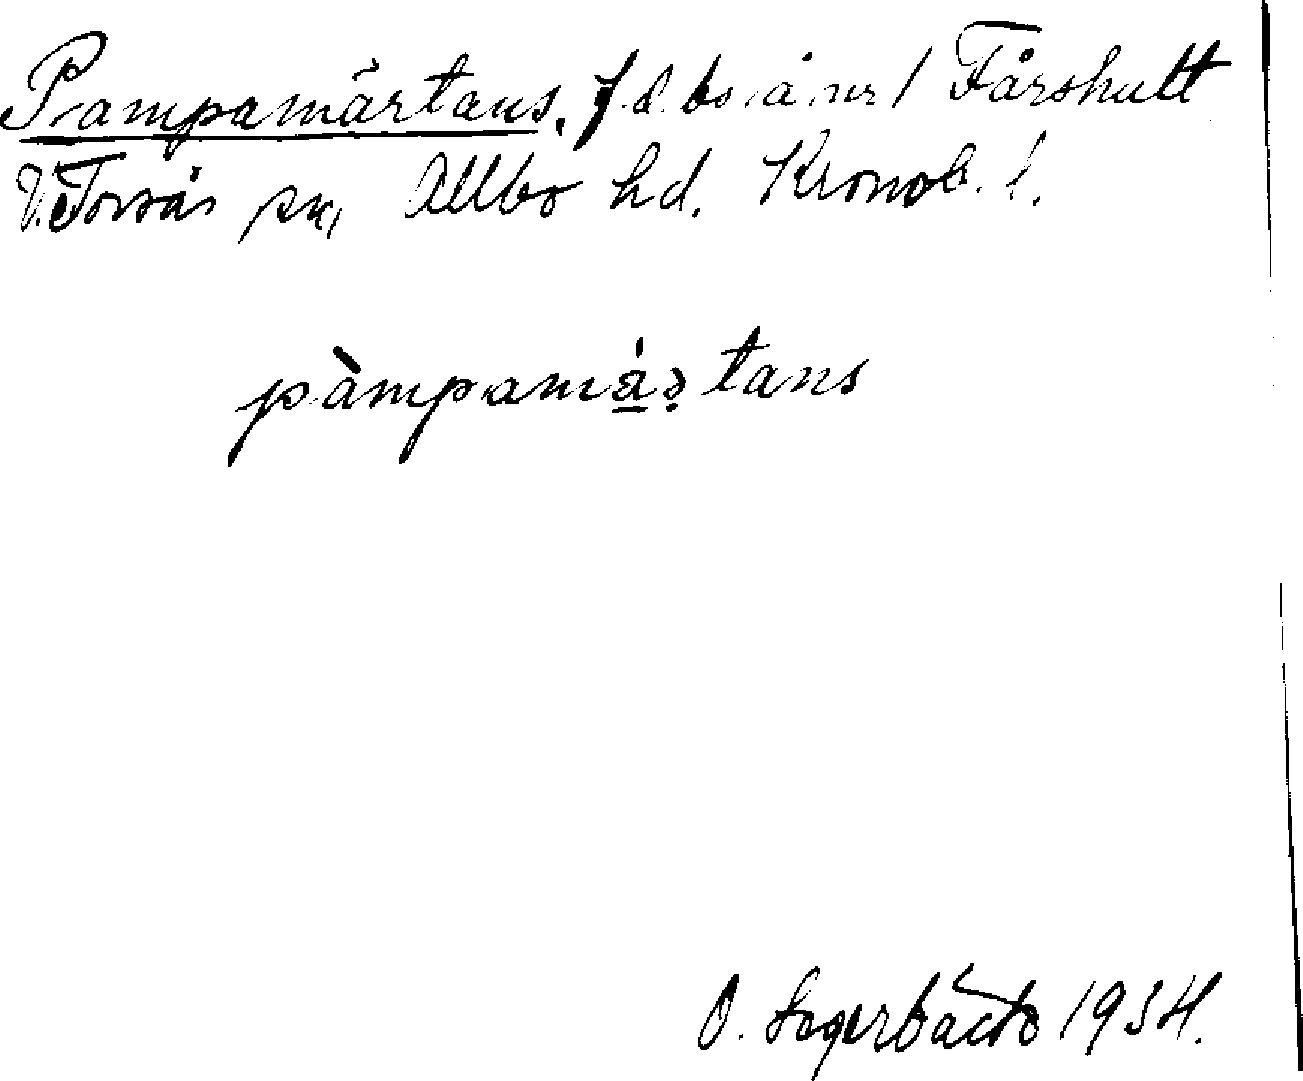 Pampamårtans. f.d. bs. å nr 1 Fårshult
V. Torsås sn, Allbo hd. Kronob. l.
pàmpamástans
O. Segerbäck 1934.